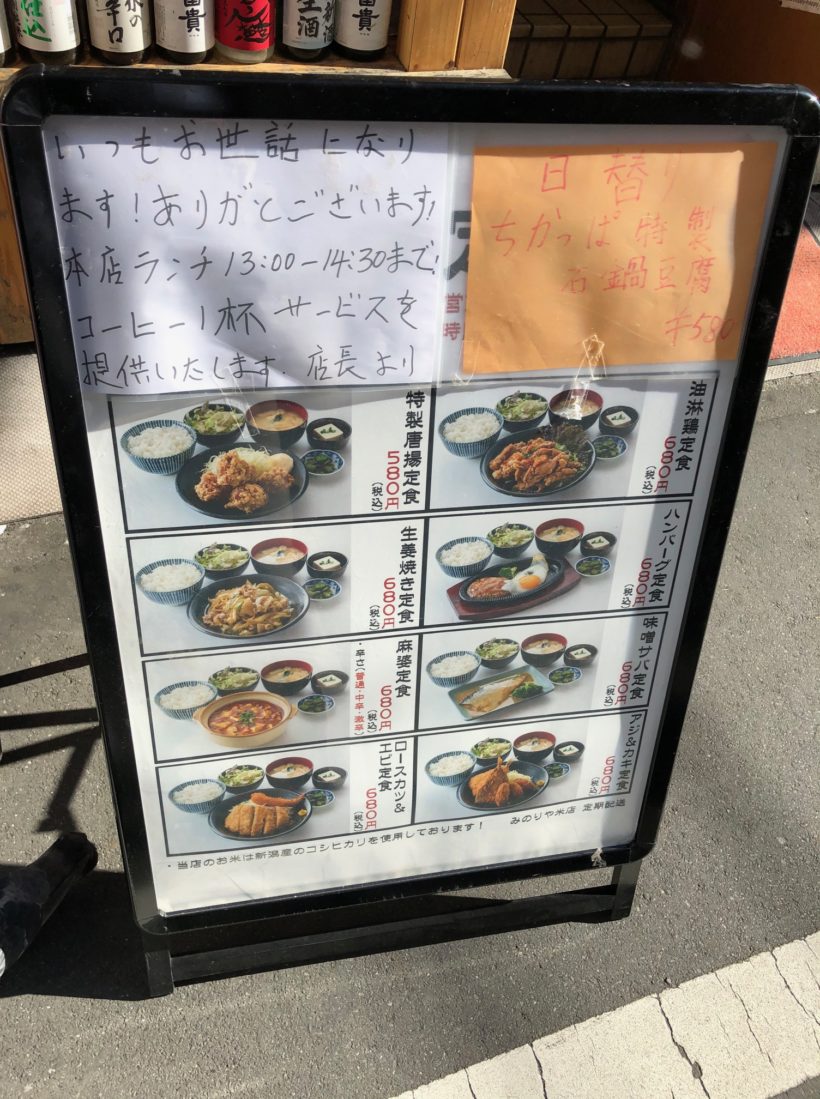 仕込
辛口
富貴
生酒
富貴
いつもお世話になり
ます!ありがとございます!
本店ランチ13:00-14:30まで!
コーヒー1杯サービスを
提供いたします. 店長より
日替り
ちかっぱ特製
石鍋豆腐
¥580
営
時
特製唐揚定食
580円
(税込)
油淋鶏定食
680円
(税込)
生姜焼き定食
680円
(税込)
ハンバーグ定食
680円
(税込)
麻婆定食
680円
(税込)
・辛さ(普通・中辛・激辛)
味噌サバ定食
680円
(税込)
ロースカツ&
エビ定食
680円
(税込)
アジ&カキ定食
680円
(税込)
・当店のお米は新潟産のコシヒカリを使用しております! みのりや米店 定期配送